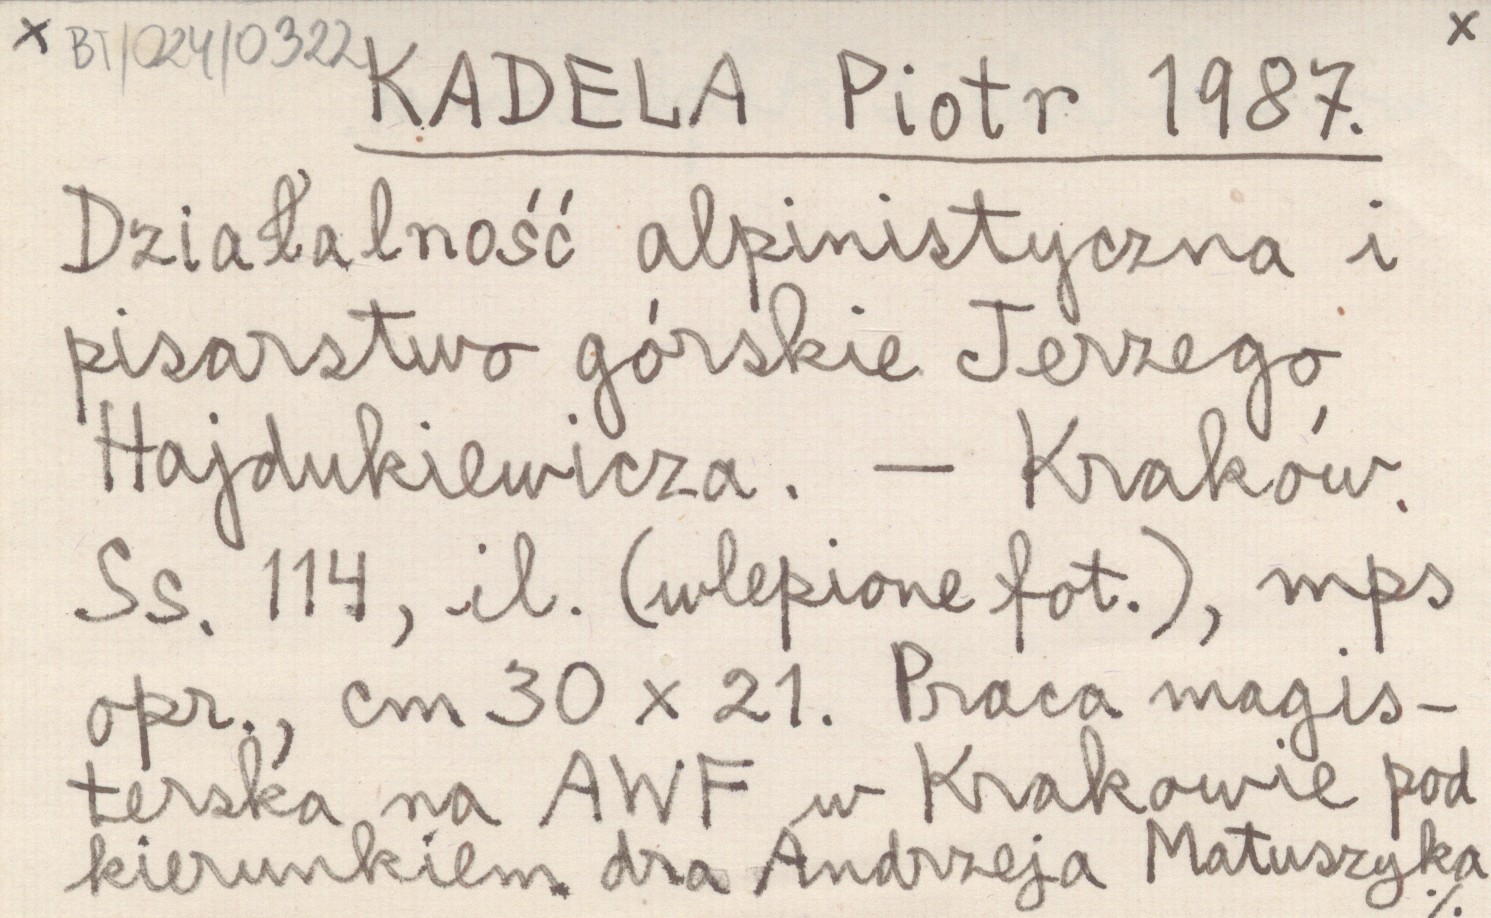 x BT/024/0322 x
KADELA Piotr 1987.
Działalność alpinistyczna i
pisarstwo górskie Jerzego
Hajdukiewicza. — Kraków.
Ss. 114, il. (wlepione fot.), mps
opr., cm 30 x 21. Praca magis-
terska na AWF w Krakowie pod
kierunkiem dra Andrzeja Matuszyka
./.